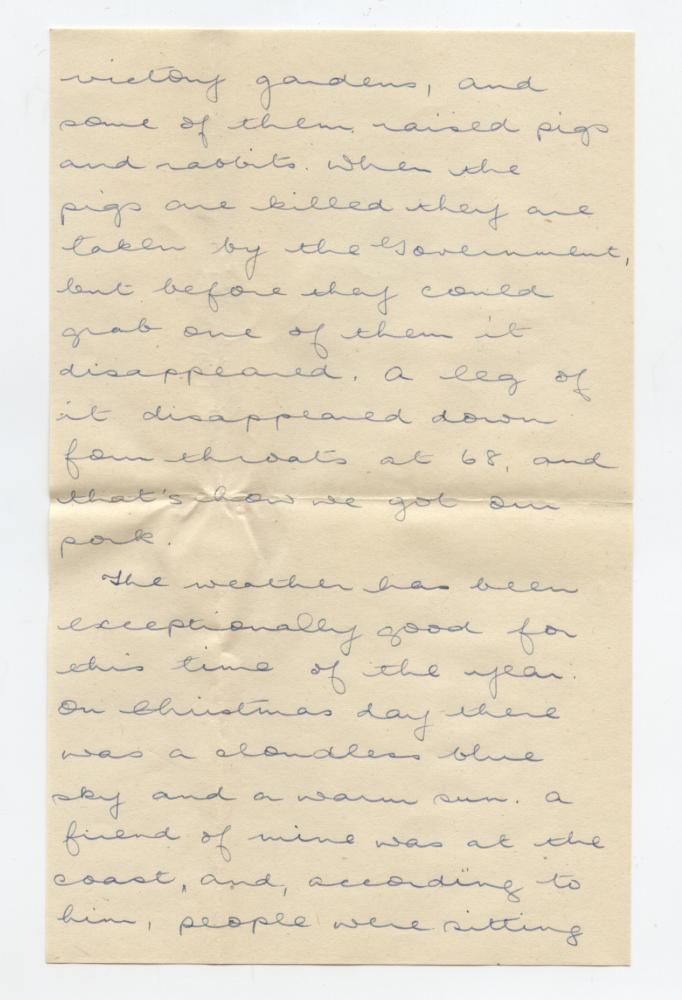 victory gardens, and
some of them raised pigs
and rabbits. When the
pigs are killed they are
taken by the Government,
but before they could
grab one of them it
disappeared. A leg of
it disappeared down
four throats at 68, and
that's how we got our
pork.
The weather has been
exceptionally good for
this time of the year.
On Christmas day there
was a cloudless blue
sky and a warm sun. A
friend of mine was at the
coast, and, according to
him, people were sitting